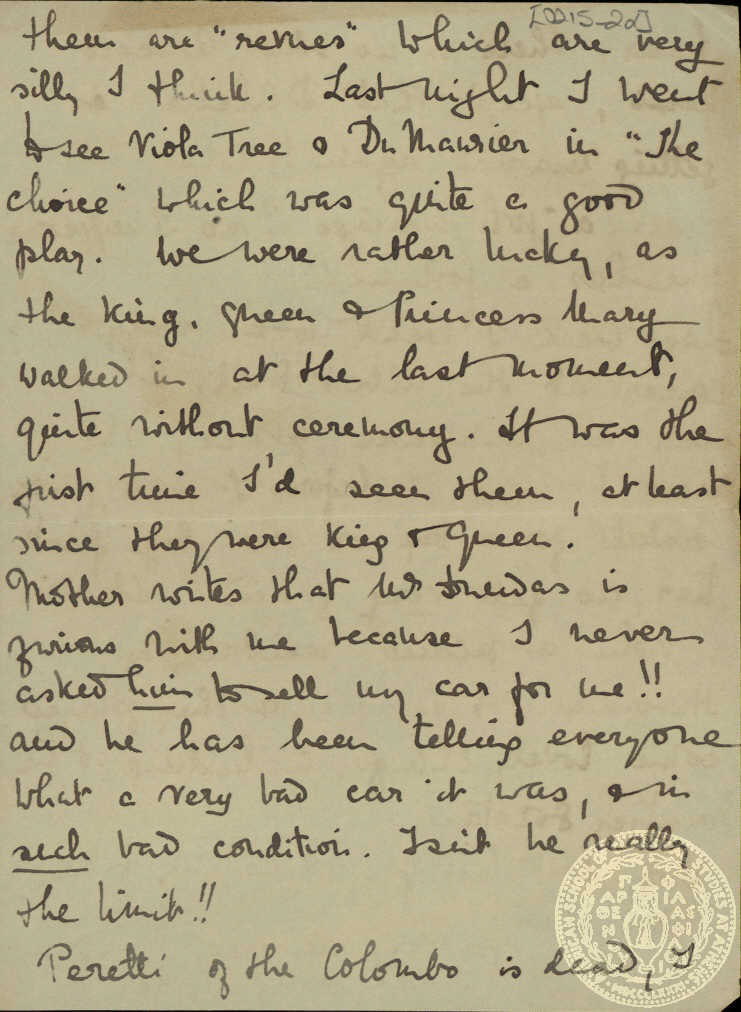 [0215-2d]
them are "revues" which are very
silly I think. Last night I went
to see Viola Tree & Du Maurier in "The
choice" which was quite a good
play. We were rather lucky, as
the King, Queen & Princess Mary
walked in at the last moment,
quite without ceremony. It was the
first time I'd seen them, at least
since they were King & Queen.
Mother writes that Mr is
furious with me because I never
asked him to sell my car for me!!
and he has been telling everyone
what a very bad car it was, & in
such bad condition. Isn't he really
the limit!!
Peretti of the Colombo is dead, I